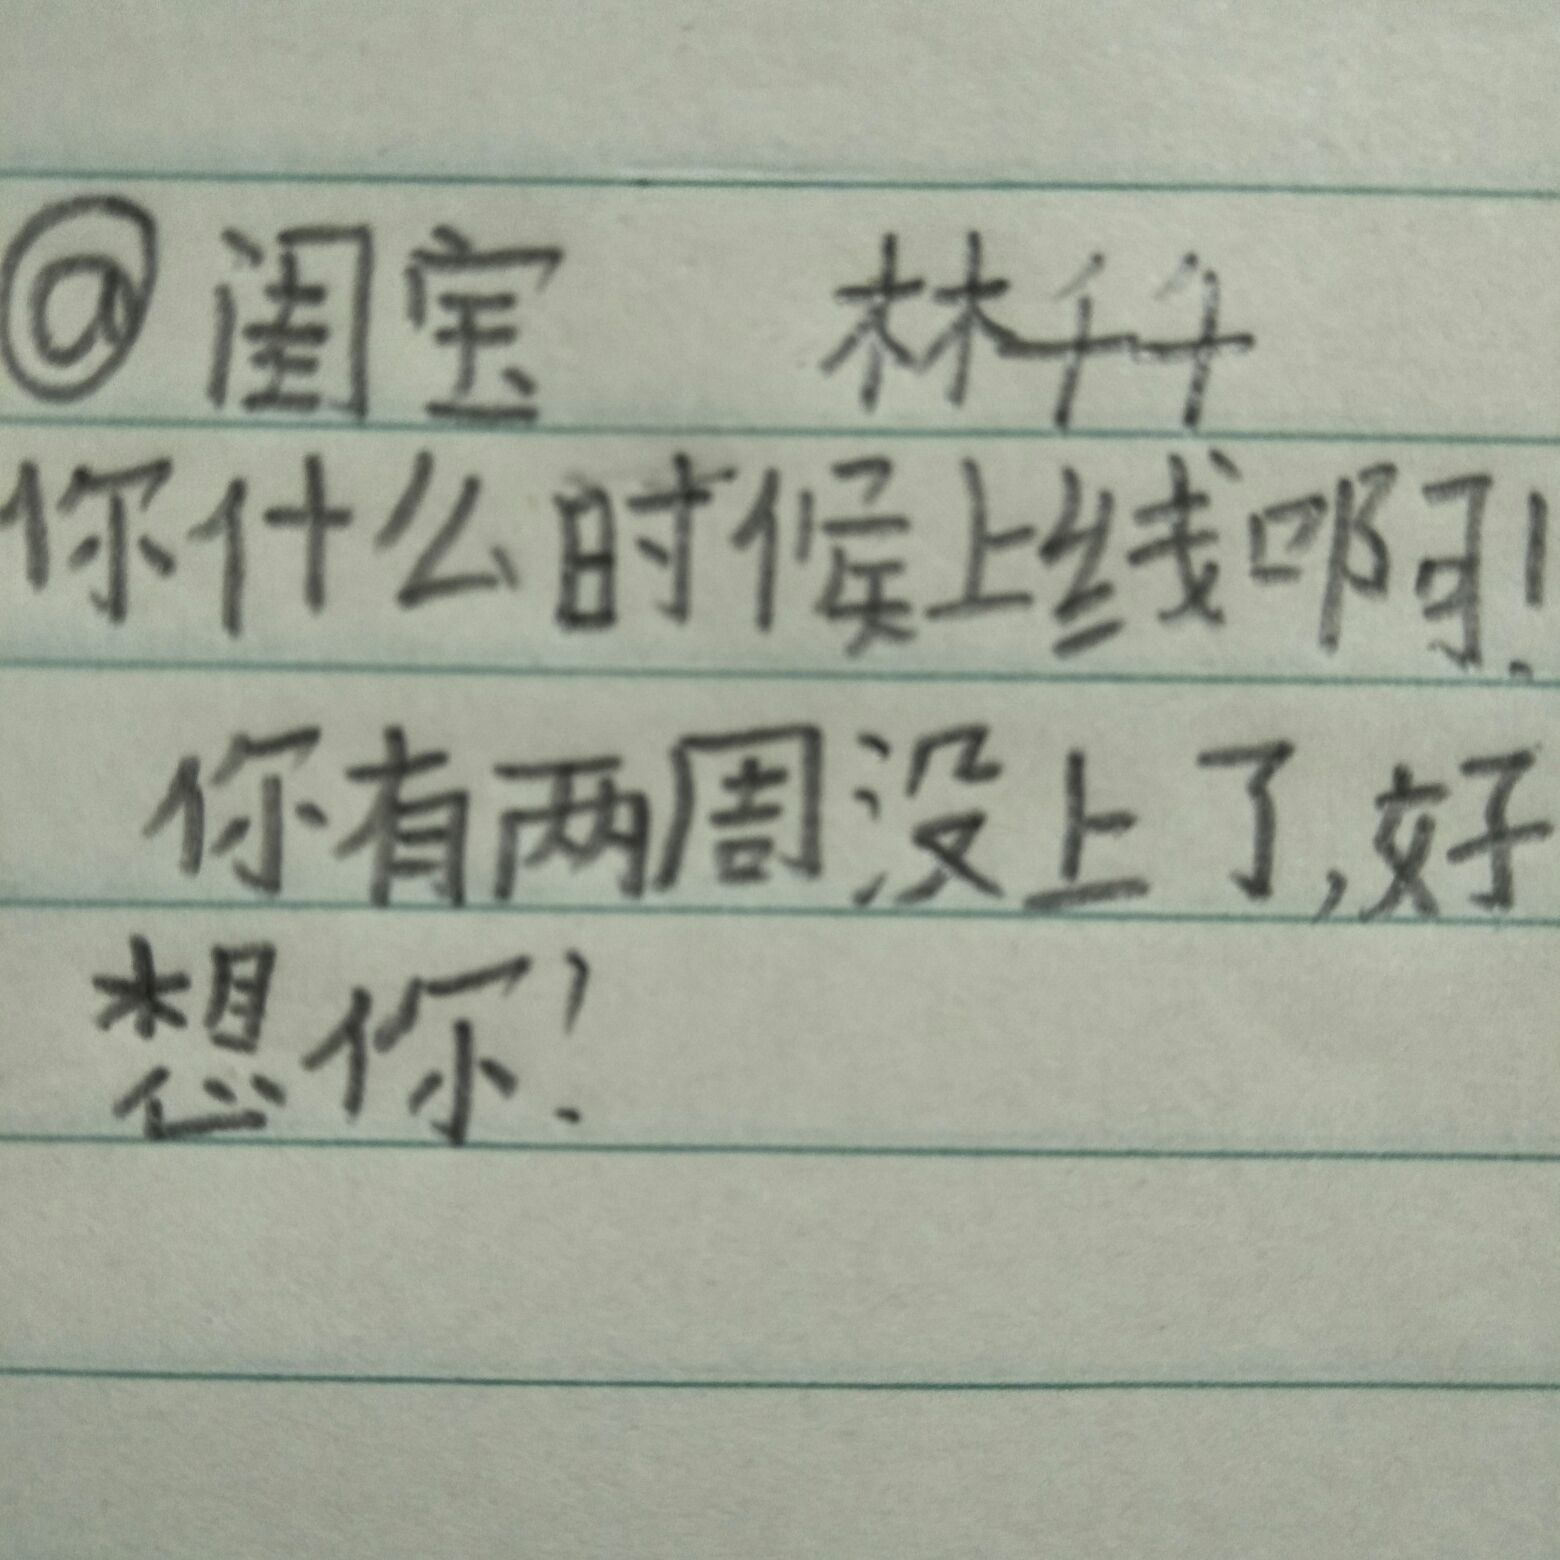 @闺宝 林千千
你什么时候上线啊!
你有两周没上了,好
想你!